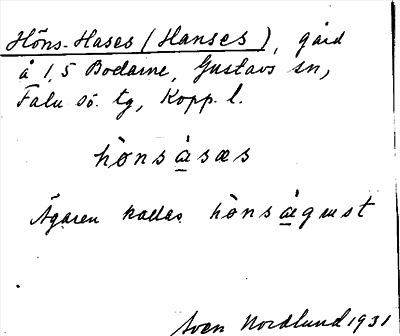 Höns-Hases (Hanses), gård
å 1,5 Bodarne, Gustavs sn,
Falu sö. tg, Kopp. l.
hö̀nsà̱sæs
Ägaren kallas hö̀nsà̱gust
Sven Nordlund 1931